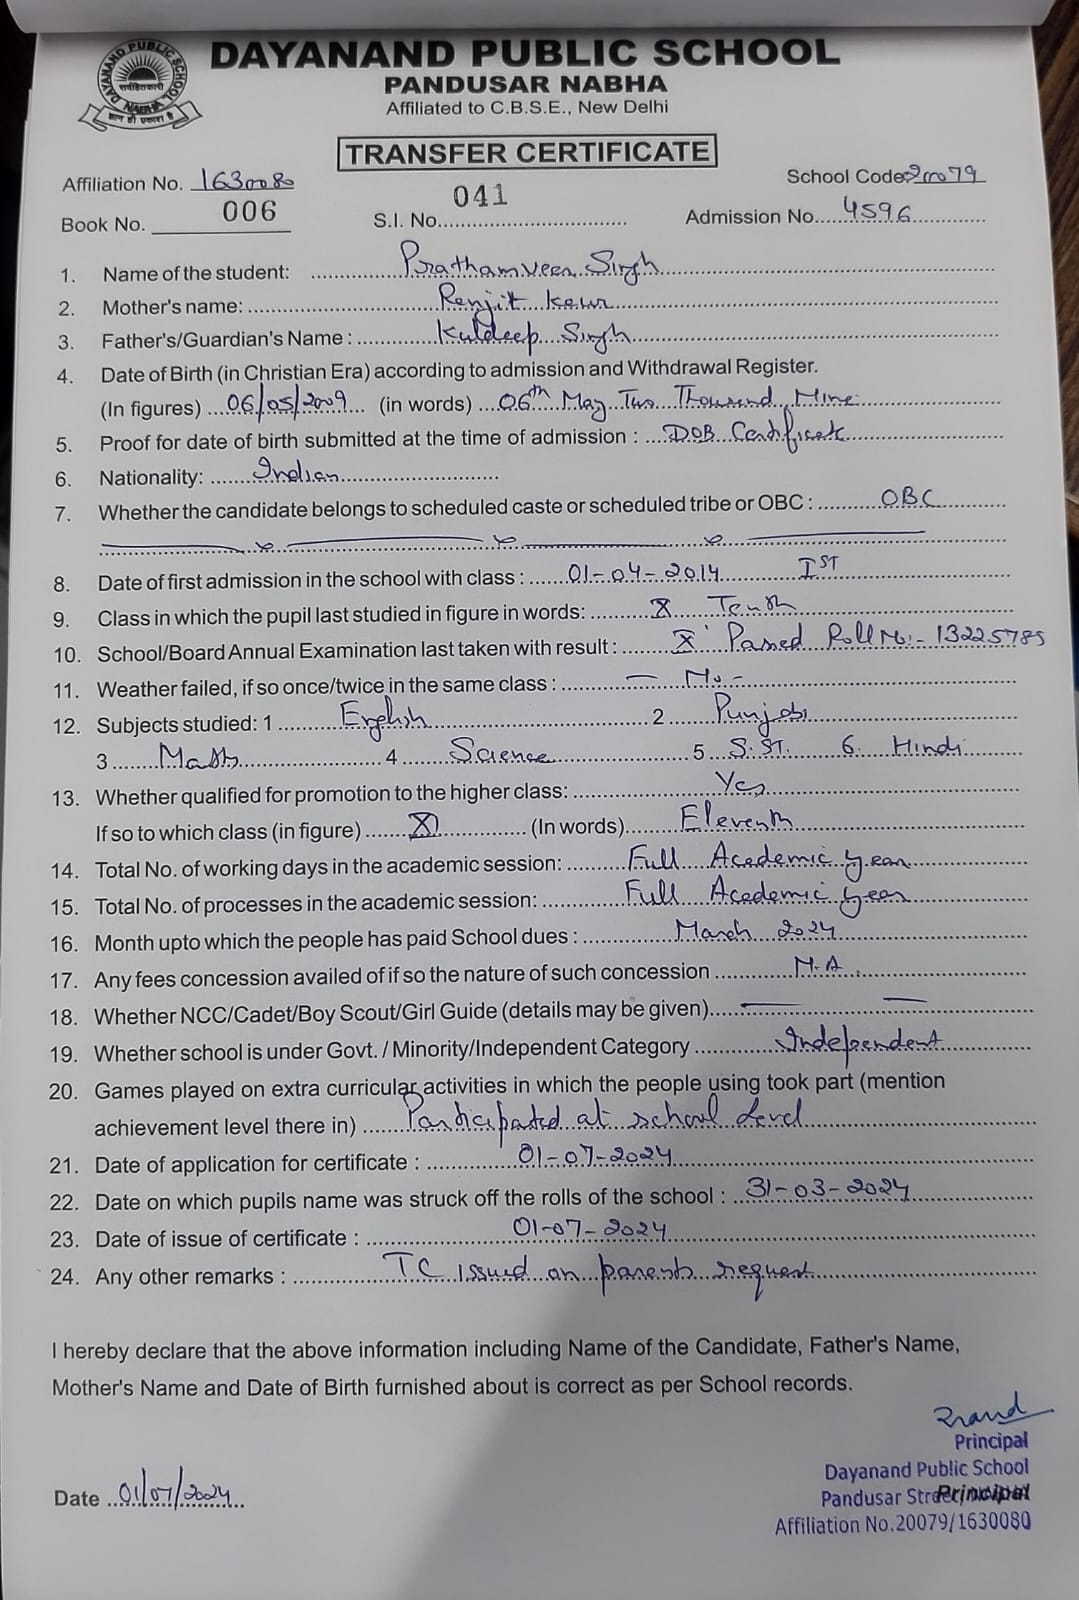 DAYANAND PUBLIC SCHOOL
PANDUSAR NABHA
Affiliated to C.B.S.E., New Delhi
DAYANAND PUBLIC SCHOOL
NABHA
TRANSFER CERTIFICATE
Affiliation No. 1630080 School Code 20079
Book No. 006 S.I. No. 041 Admission No. 4596
1. Name of the student: Prathamveer Singh
2. Mother's name: Renjit Kaur
3. Father's/Guardian's Name : Kuldeep Singh
4. Date of Birth (in Christian Era) according to admission and Withdrawal Register.
(In figures) 06/05/2009 (in words) 06th May Two Thousand Nine
5. Proof for date of birth submitted at the time of admission : DOB Certificate
6. Nationality: Indian
7. Whether the candidate belongs to scheduled caste or scheduled tribe or OBC : OBC
8. Date of first admission in the school with class : 01-04-2014 IST
9. Class in which the pupil last studied in figure in words: X Tenth
10. School/Board Annual Examination last taken with result : X Passed Roll No:- 13225785
11. Weather failed, if so once/twice in the same class : — No -
12. Subjects studied: 1 English 2 Punjabi
3 Math 4 Science 5 S.ST. 6. Hindi
13. Whether qualified for promotion to the higher class: Yes
If so to which class (in figure) XI (In words) Eleventh
14. Total No. of working days in the academic session: Full Academic year
15. Total No. of processes in the academic session: Full Academic year
16. Month upto which the people has paid School dues : March 2024
17. Any fees concession availed of if so the nature of such concession N.A
18. Whether NCC/Cadet/Boy Scout/Girl Guide (details may be given) — —
19. Whether school is under Govt. / Minority/Independent Category Independent
20. Games played on extra curricular activities in which the people using took part (mention
achievement level there in) Participated at school level
21. Date of application for certificate : 01-07-2024
22. Date on which pupils name was struck off the rolls of the school : 31-03-2024
23. Date of issue of certificate : 01-07-2024
24. Any other remarks : TC issued on parents request
I hereby declare that the above information including Name of the Candidate, Father's Name,
Mother's Name and Date of Birth furnished about is correct as per School records.
Principal
Dayanand Public School
Date 01/07/2024
Pandusar Principal
Affiliation No.20079/1630080